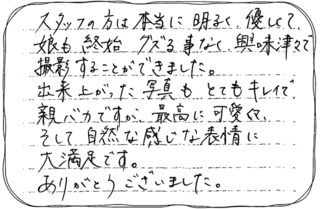 スタッフの方は本当に明るく、優しくて、
娘も終始グズる事なく、興味津々で
撮影することができました。
出来上がった写真もとてもキレイで、
親バカですが、最高に可愛くて、
そして自然な感じな表情に
大満足です。
ありがとうございました。